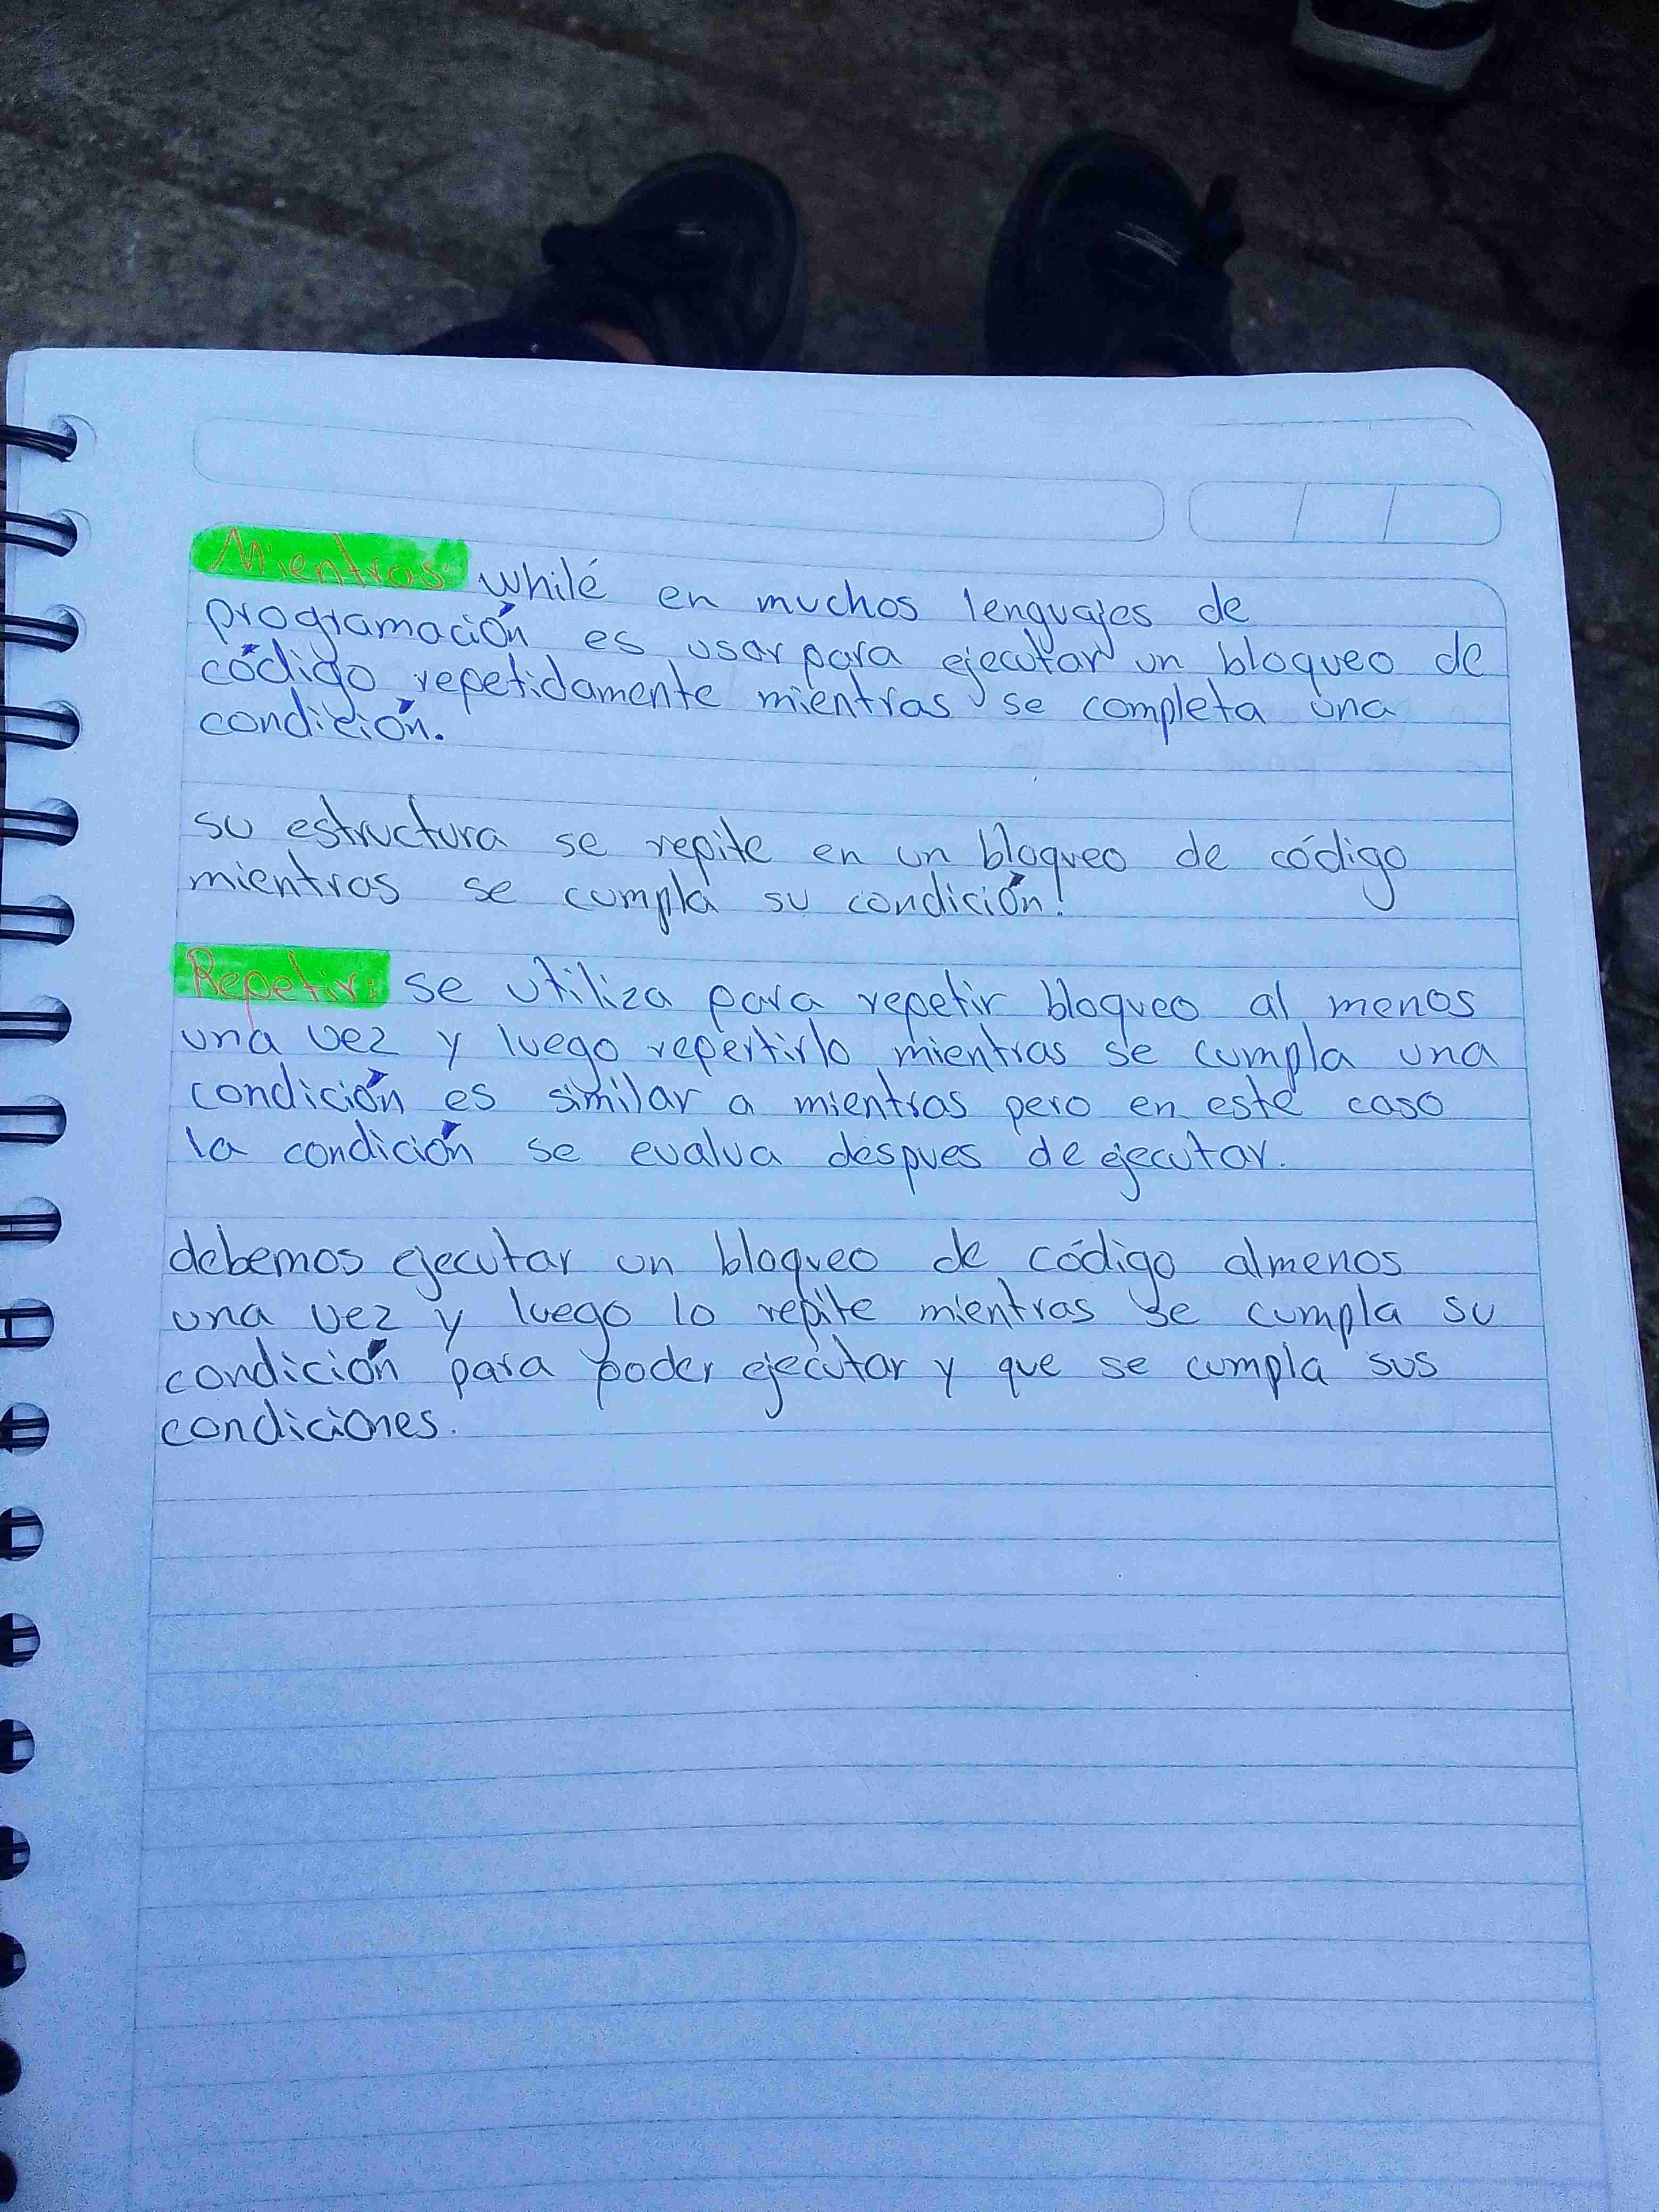 Mientras: while en muchos lenguajes de
programación es usar para ejecutar un bloqueo de
código repetidamente mientras se completa una
condición.
su estructura se repite en un bloqueo de código
mientras se cumpla su condición!
Repetir: se utiliza para repetir bloqueo al menos
una vez y luego repertirlo mientras se cumpla una
condición es similar a mientras pero en este caso
la condición se evalua despues de ejecutar.
debemos ejecutar un bloqueo de código almenos
una vez y luego lo repite mientras se cumpla su
condición para poder ejecutar y que se cumpla sus
condiciones.